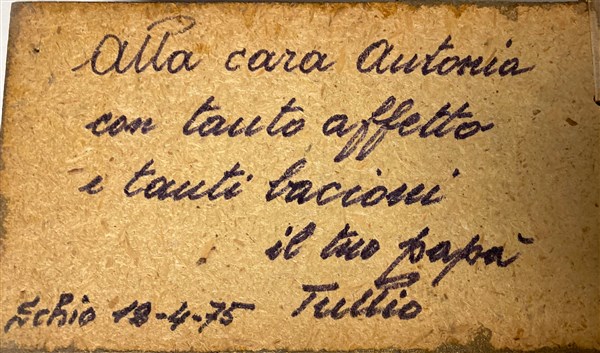 Alla cara Antonia
con tanto affetto
e tanti bacioni
il tuo papà
Tullio
Schio 18-4-75